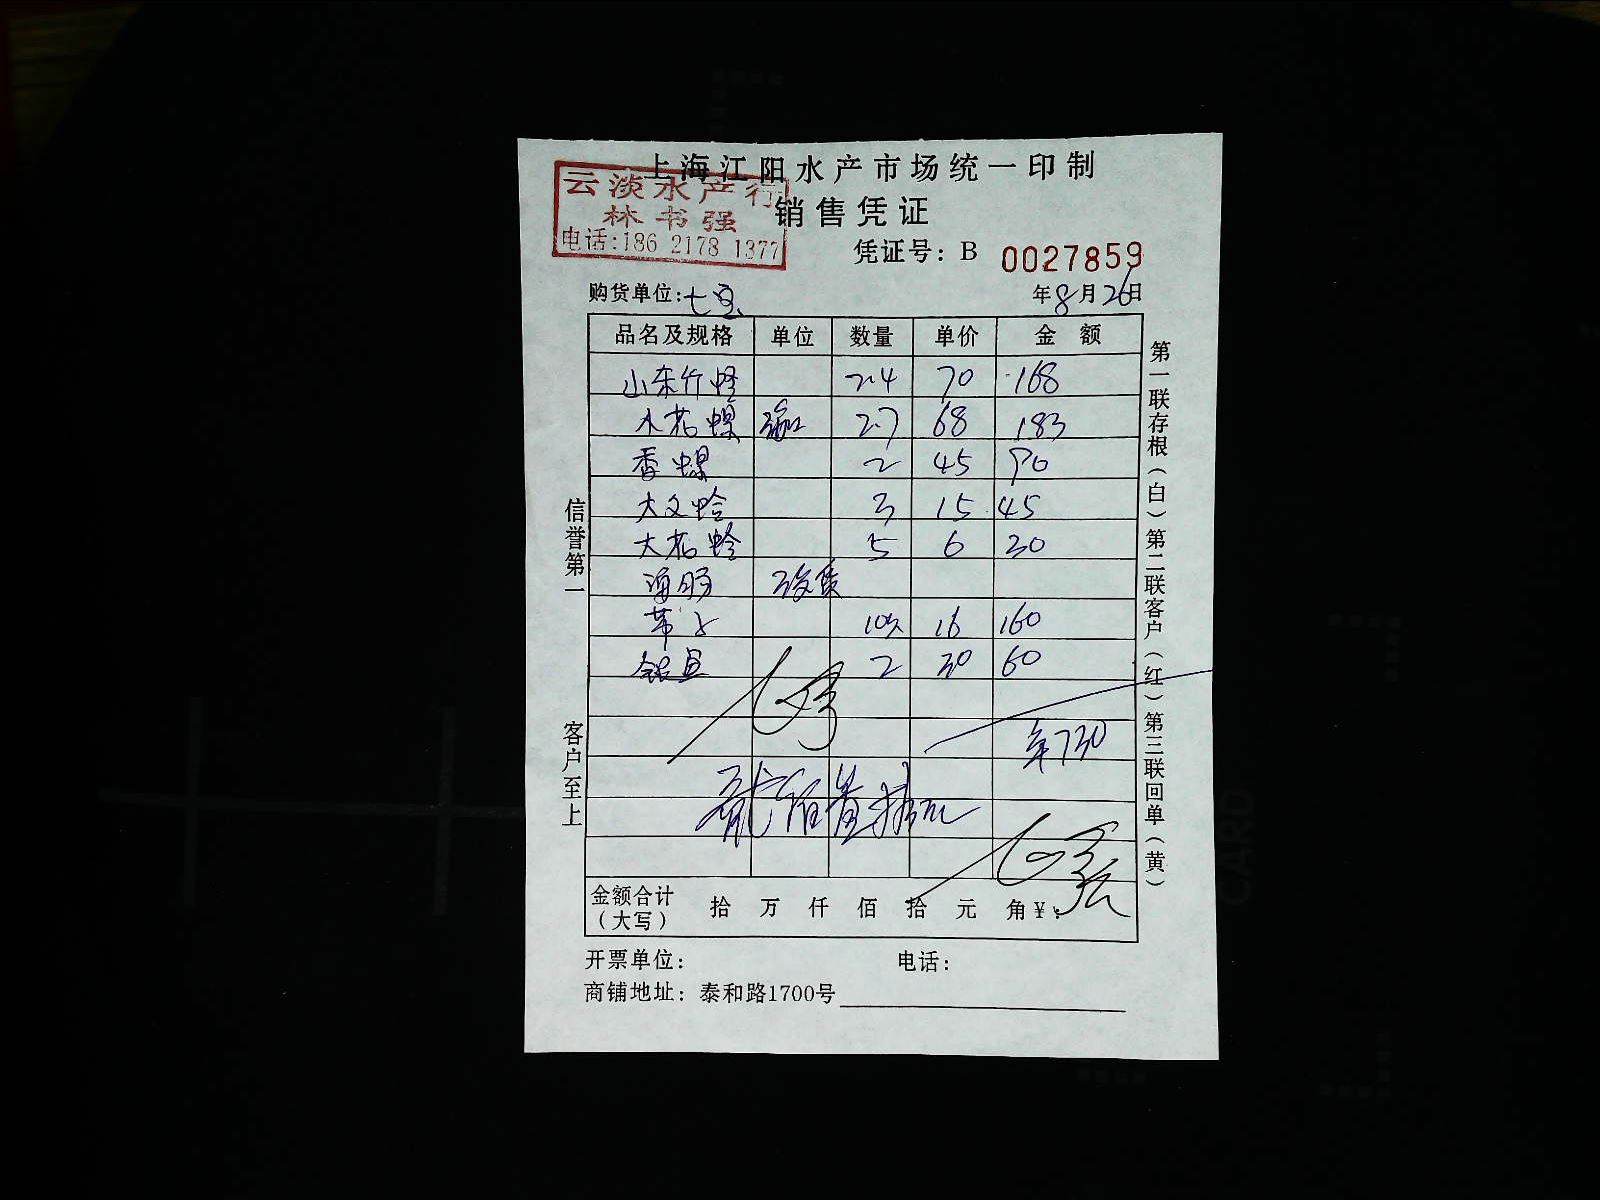 上海江阳水产市场统一印制
云淡水产行
林书强
电话:186 2178 1377
销售凭证
凭证号: B 0027859
购货单位:七宝 年8月26日
品名及规格 单位 数量 单价 金额
山东竹蛏 2.4 70 168
水花螺 2.7 68 183
香螺 2 45 90
大文蛤 3 15 45
大花蛤 5 6 30
海肠
带子 10只 16 160
2 30 60
730
柒佰叁拾元
金额合计(大写) 拾 万 仟 佰 拾 元 角¥:
开票单位: 电话:
商铺地址: 泰和路1700号
信誉第一
客户至上
第一联存根(白)第二联客户(红)第三联回单(黄)